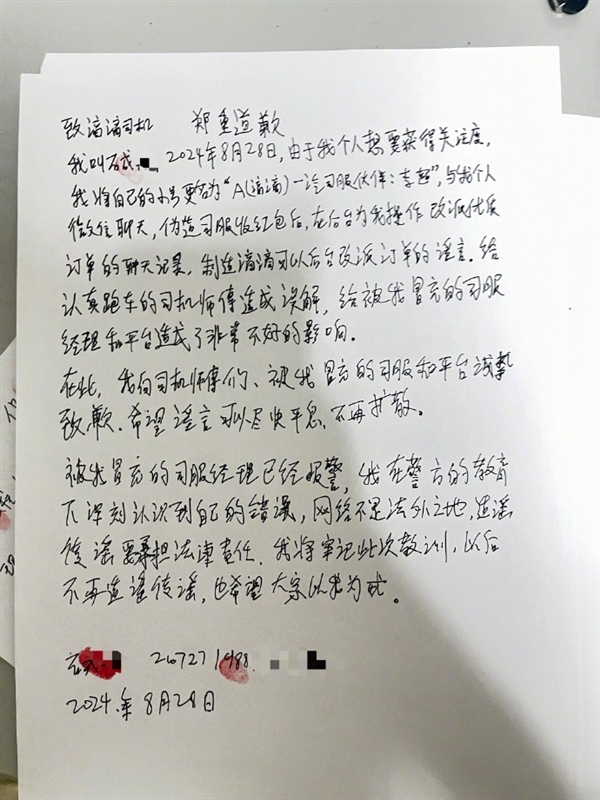 致滴滴司机 郑重道歉
我叫 2024年8月28日,由于我个人想要获得关注度,
我将自己的小号更名为“A(滴滴)一说司服伙伴:李超”,与我个人
微信聊天,伪造司服收红包后,在后台为我操作改派优质
订单的聊天记录,制造滴滴可以后台改派订单的谣言.给
认真跑车的司机师傅造成误解,给被我冒充的司服
经理和平台造成了非常不好的影响.
在此,我向司机师傅们、被我冒充的司服和平台诚挚
致歉.希望谣言可以尽快平息、不再扩散。
被我冒充的司服经理已经报警,我在警方的教育
下深刻认识到自己的错误,网络不是法外之地,造谣
传谣要承担法律责任.我将牢记此次教训,以后
不再造谣传谣,也希望大家以我为戒。
2024.年8月28日